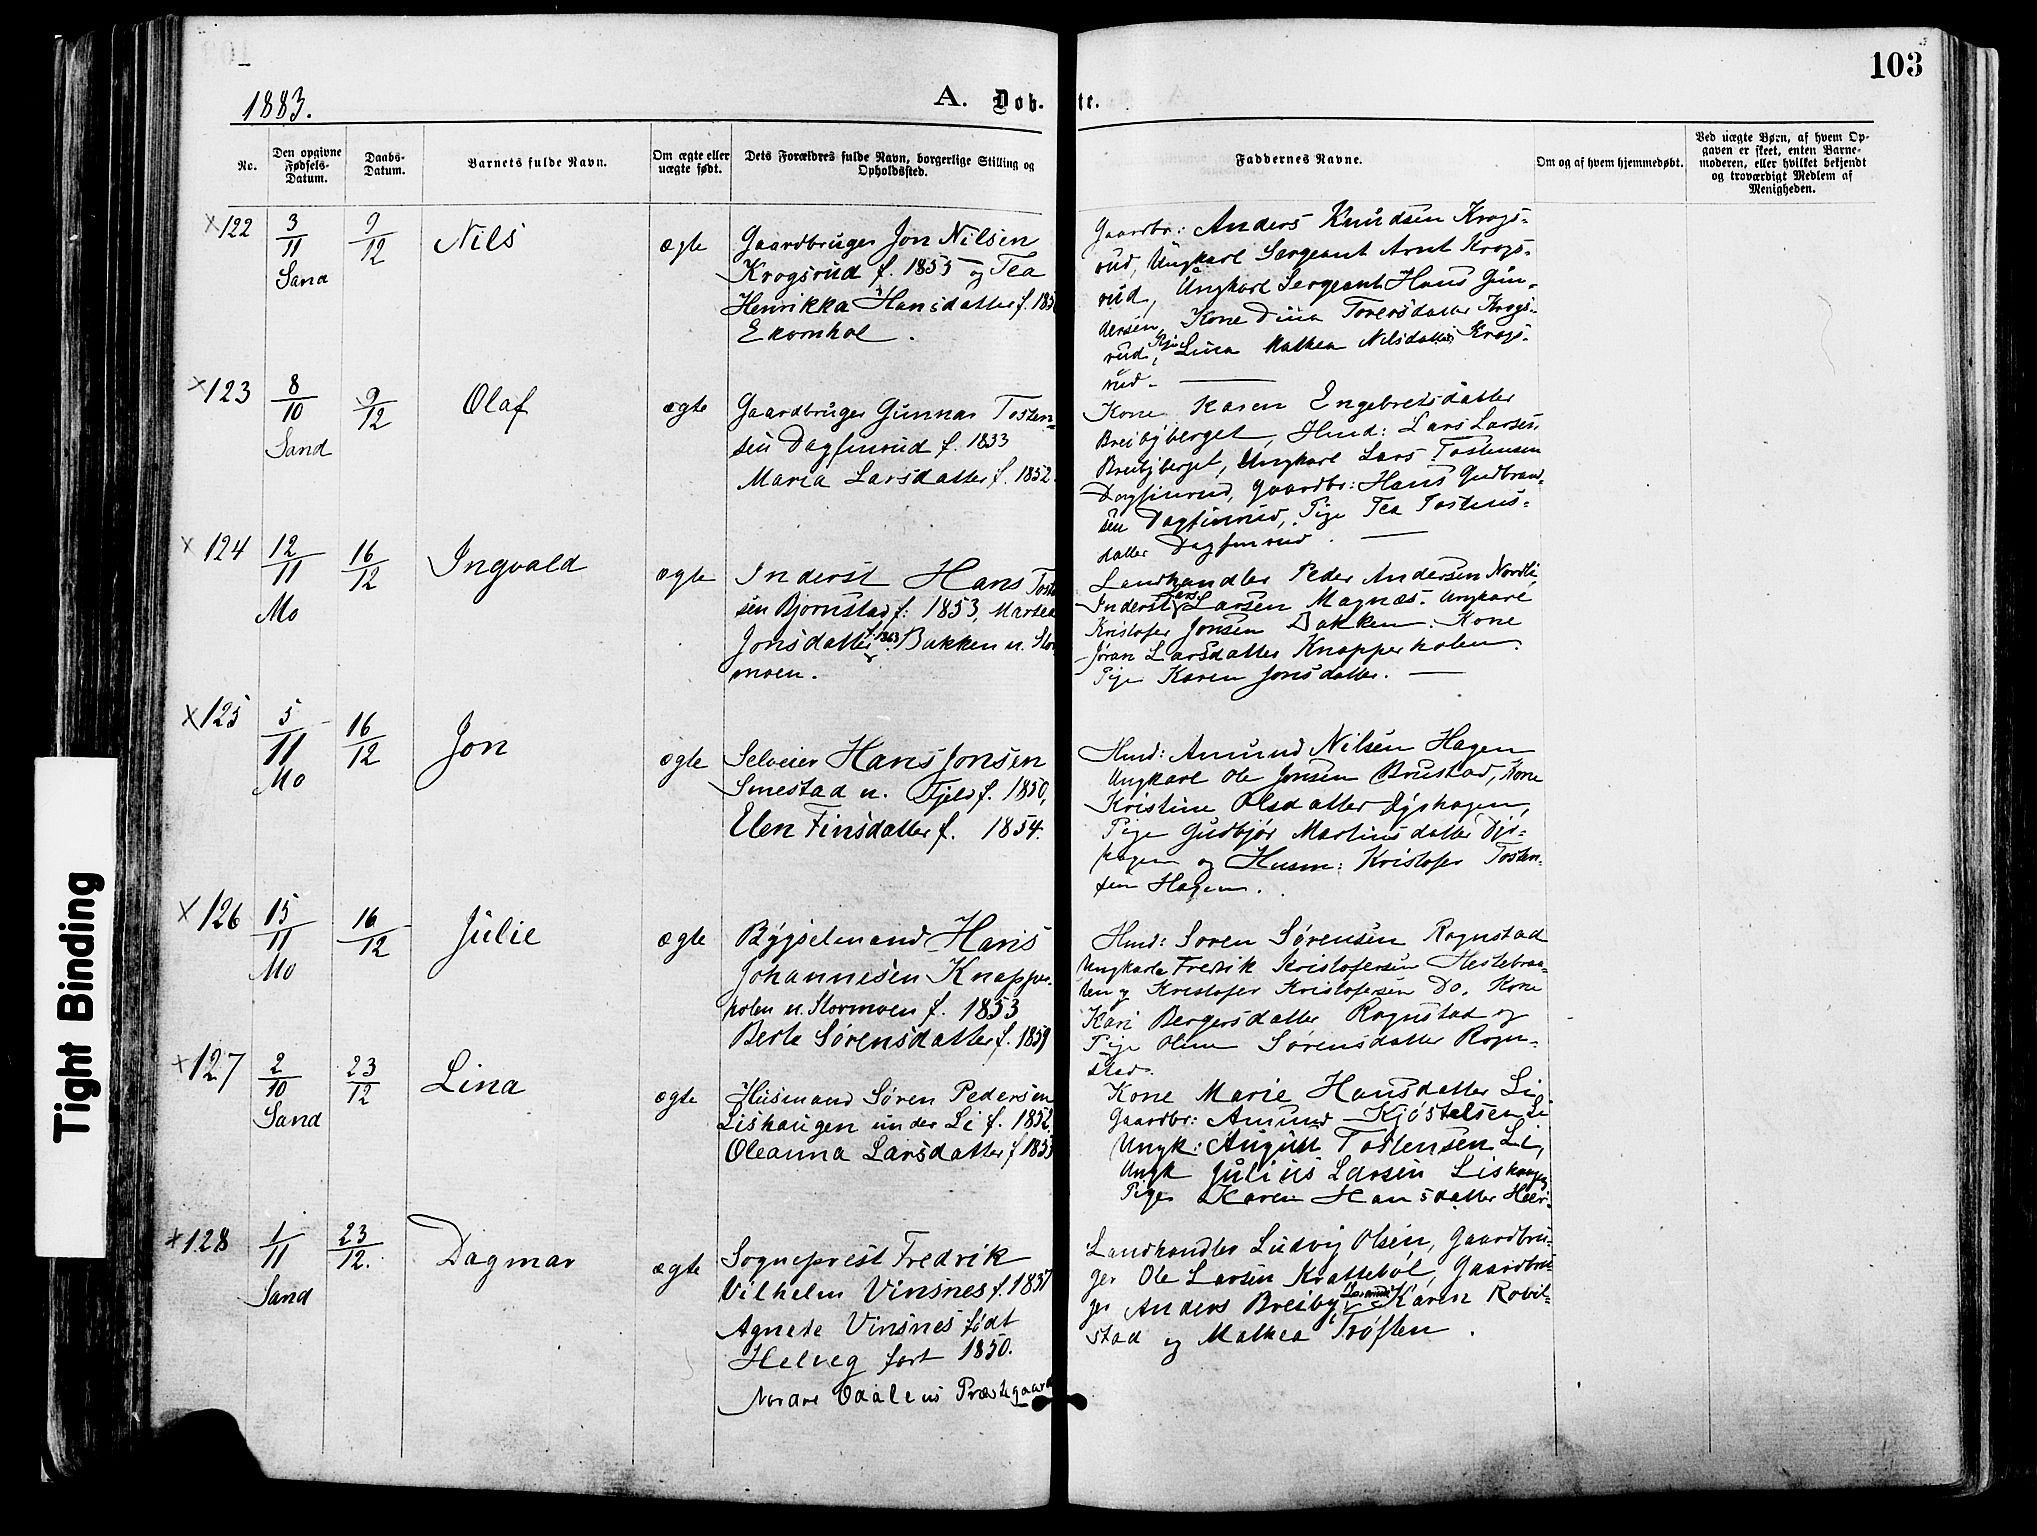 103
1883.
A. Døb- te.
No.
Den opgivne
Fødsels-
Datum.
Daabs-
Datum.
Barnets fulde Navn.
Om ægte eller
uægte født.
Dets Forældres fulde Navn, borgerlige Stilling og
Opholdssted.
Faddernes Navne.
Om og af hvem hjemmedøbt.
Ved uægte Børn, af hvem Op-
gaven er skeet, enten Barne-
moderen, eller hvilket bekjendt
og troværdigt Medlem af
Menigheden.
× 122 3/11 Sand 9/12 Nils ægte
Gaardbruger Jon Nilsen
Krogsrud f. 1855 og Tea
Henrikka Hansdatter f.
Ekornhol.
Gaardbr: Anders Knudsen Krogs-
rud, Ungkarl Sergeant Arnt Krogs-
rud, Ungkarl Sergeant Hans Gun-
dersen, Kone Dina Torersdatter Krogs-
rud, Pige Lina Mathea Nilsdatter Krogs-
rud.
× 123 8/10 Sand 9/12 Olaf ægte
Gaardbruger Gunnar Tosten-
sen Dagfinrud f. 1833
Maria Larsdatter f. 1852.
Kone Karen Engebretsdatter
Breibyberget, Husd: Lars Larsen
Breibyberget, Ungkarl Lars Tostensen
Dagfinrud, Gaardbr: Hans Gudbrand-
sen Dagfinrud, Pige Tea Tostens-
datter Dagfinrud.
× 124 12/11 Mo 16/12 Ingvald ægte
Inderst Hans Tost
sen Bjørnstad f. 1853, Martea
Jonsdatter f. 1863 Bakken u. Stor
moen.
Landhandler Peder Andersen Nordli,
Inderst Lars Larsen Magnæs. Ungkarl
Kristofer Jonsen Bakken. Kone
Jøran Larsdatter Knapperholen.
Pige Karen Jonsdatter.
× 125 5/11 Mo 16/12 Jon ægte
Selveier Hans Jonsen
Smestad u. Fjeld f. 1850,
Elen Finsdatter f. 1854.
Husd: Amund Nilsen Hagen
Ungkarl Ole Jonsen Brustad, Kone
Kristine Olsdatter Dyshagen,
Pige Gudbjør Martinusdatter Dys-
hagen og Husm: Kristofer Tosten-
sen Hagen.
× 126 15/11 Mo 16/12 Julie ægte
Bygselmand Hans
Johannesen Knapper-
holen u. Stormoen f. 1853
Berte Sørensdatter f. 1859
Husd: Søren Sørensen Rognstad
Ungkarle Fredrik Kristofersen Hestebraa-
ten og Kristofer Kristofersen Do. Kone
Kari Bergersdatter Rognstad og
Pige Oline Sørensdatter Rogn-
stad.
× 127 2/10 Sand 23/12 Lina ægte
Husmand Søren Pedersen
Lishaugen under Li f. 1852.
Oleanna Larsdatter f 1853
Kone Marie Hansdatter Li
Gaardbr: Amund Kjøstelsen Li
Ungk: August Tostensen Li,
Ungk Julius Larsen Lishaugen
Pige Karen Hansdatter
× 128 1/11 Sand 23/12. Dagmar ægte
Sogneprest Fredrik
Vilhelm Vinsnes f. 1837
Agnete Vinsnes født
Helveg født 1850.
Nordre Odalens Præstegaard
Landhandler Ludvig Olsen, Gaardbru-
ger Ole Larsen Kratteböl, Gaardbru-
ger Anders Breiby, Karen Robil-
stad og Mathea Trøften.
Tight Binding